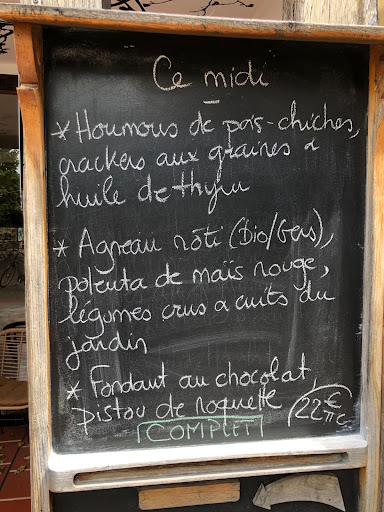 Ce midi
-
* Houmous de pois-chiches,
crackers aux graines &
huile de thym
* Agneau rôti (Bio/Gers),
polenta de maïs rouge,
légumes crus & cuits du
jardin
* Fondant au chocolat,
pistou de roquette 22€
COMPLET